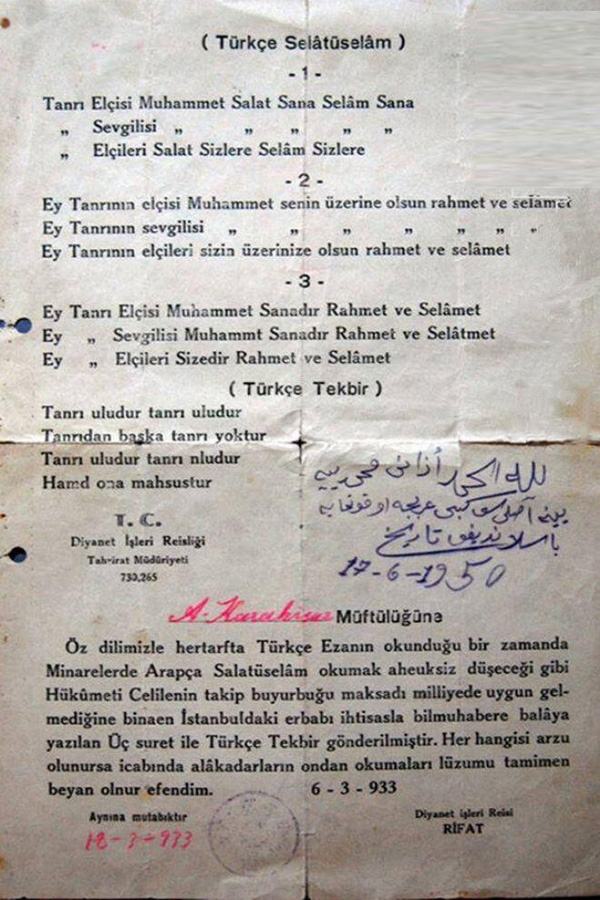 ( Türkçe Selâtüselâm )
- 1 -
Tanrı Elçisi Muhammet Salat Sana Selâm Sana
„ Sevgilisi „ „ „ „ „
„ Elçileri Salat Sizlere Selâm Sizlere
- 2 -
Ey Tanrının elçisi Muhammet senin üzerine olsun rahmet ve selâmet
Ey Tanrının sevgilisi „ „ „ „ „ „ „
Ey Tanrının elçileri sizin üzerinize olsun rahmet ve selâmet
- 3 -
Ey Tanrı Elçisi Muhammet Sanadır Rahmet ve Selâmet
Ey „ Sevgilisi Muhammt Sanadır Rahmet ve Selâtmet
Ey „ Elçileri Sizedir Rahmet ve Selâmet
( Türkçe Tekbir )
Tanrı uludur tanrı uludur
Tanrıdan başka tanrı yoktur
Tanrı uludur tanrı nludur
Hamd ona mahsustur
لله الحمد أذان
عربجه اوقونمايه
باشلانديغى تاريخ
17-6-1950
T. C.
Diyanet İşleri Reisliği
Tahrirat Müdüriyeti
730,265
A-Karahisar Müftülüğüne
Öz dilimizle hertarfta Türkçe Ezanın okunduğu bir zamanda
Minarelerde Arapça Salatüselâm okumak aheuksiz düşeceği gibi
Hükûmeti Celilenin takip buyurbuğu maksadı milliyede uygun gel-
mediğine binaen İstanbuldaki erbabı ihtisasla bilmuhabere balâya
yazılan Üç suret ile Türkçe Tekbir gönderilmiştir. Her hangisi arzu
olunursa icabında alâkadarların ondan okumaları lüzumu tamimen
beyan olnur efendim. 6 - 3 - 933
Aynına mutabıktır
18-3-933
Diyanet işleri Reisi
RİFAT